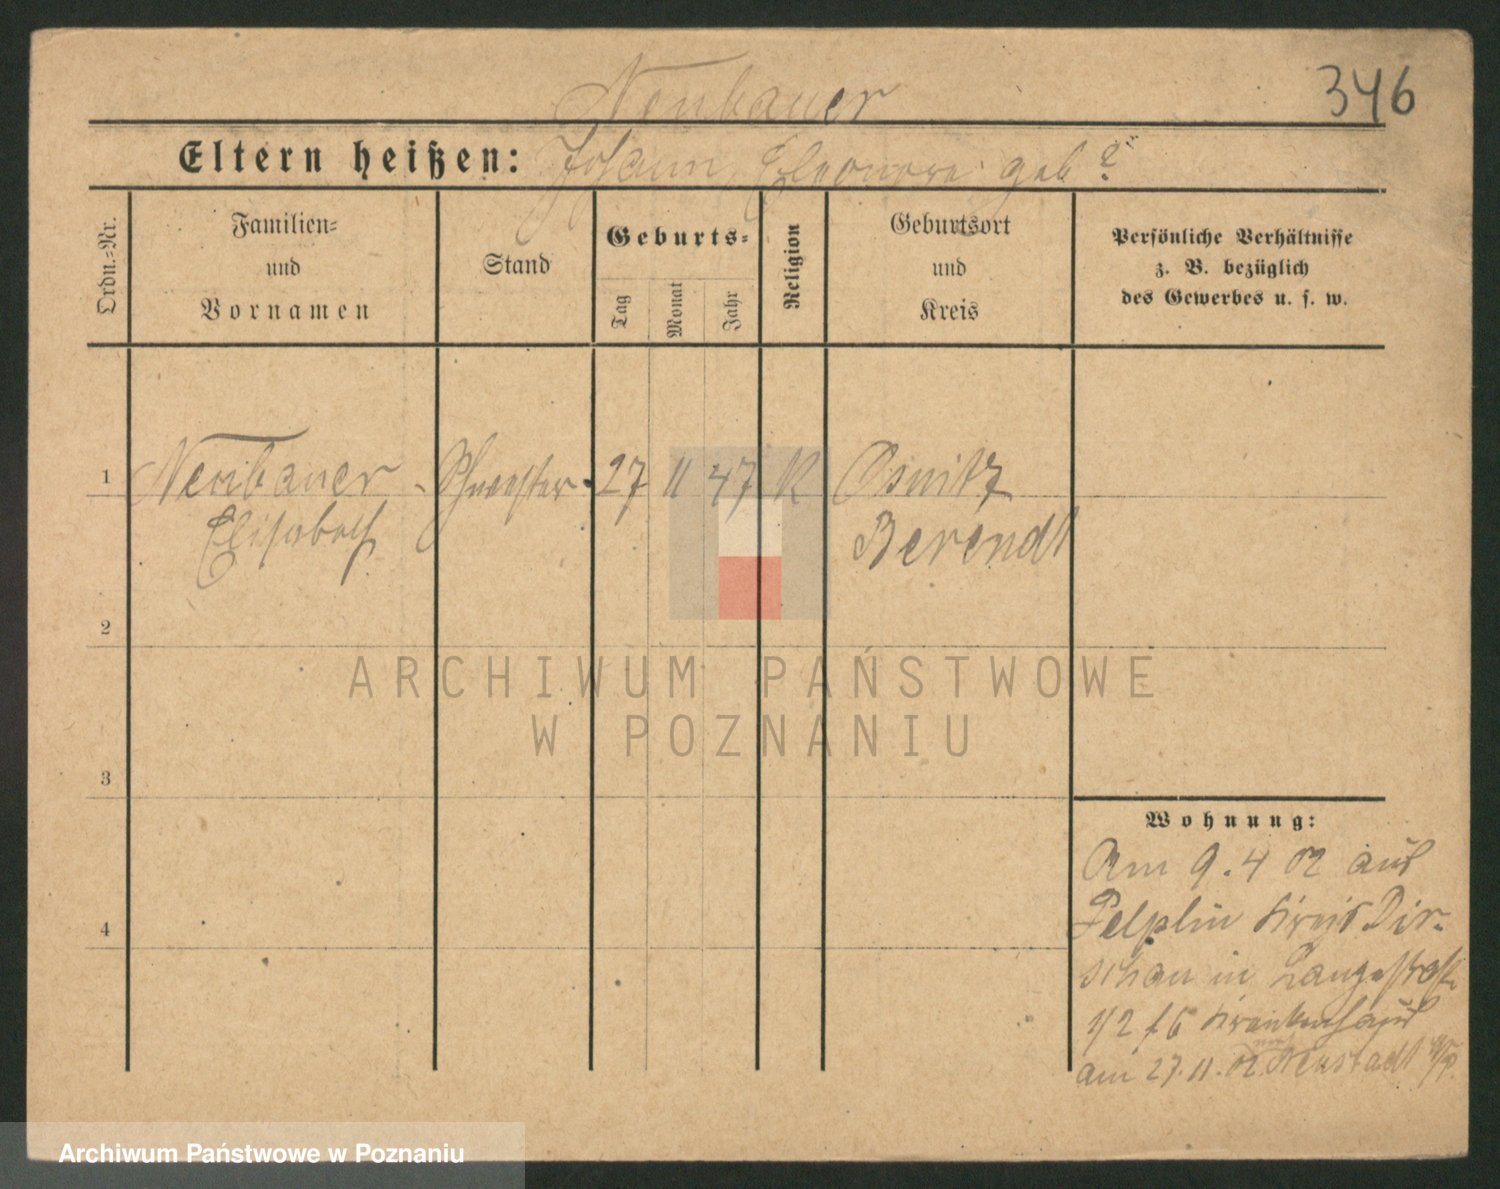 346
Neubauer
Eltern heißen: Johann, Eleonore geb ?
Ordn.=Nr.
Familien=
und
Vornamen
Stand
Geburts=
Tag
Monat
Jahr
Religion
Geburtsort
und
Kreis
Persönliche Verhältnisse
z. B. bezüglich
des Gewerbes u. s. w.
1 Neubauer Schwester 27 11 47 K Osnitz
Elisabeth Berendt
2
3
4
Wohnung:
Am 9. 4 02 aus
Pelplin Kreis Dir-
schau in Langestraße
1/2 Krankenhaus
am 27. 11. 02 nach Neustadt W/P.
ARCHIWUM PAŃSTWOWE
W POZNANIU
Archiwum Państwowe w Poznaniu